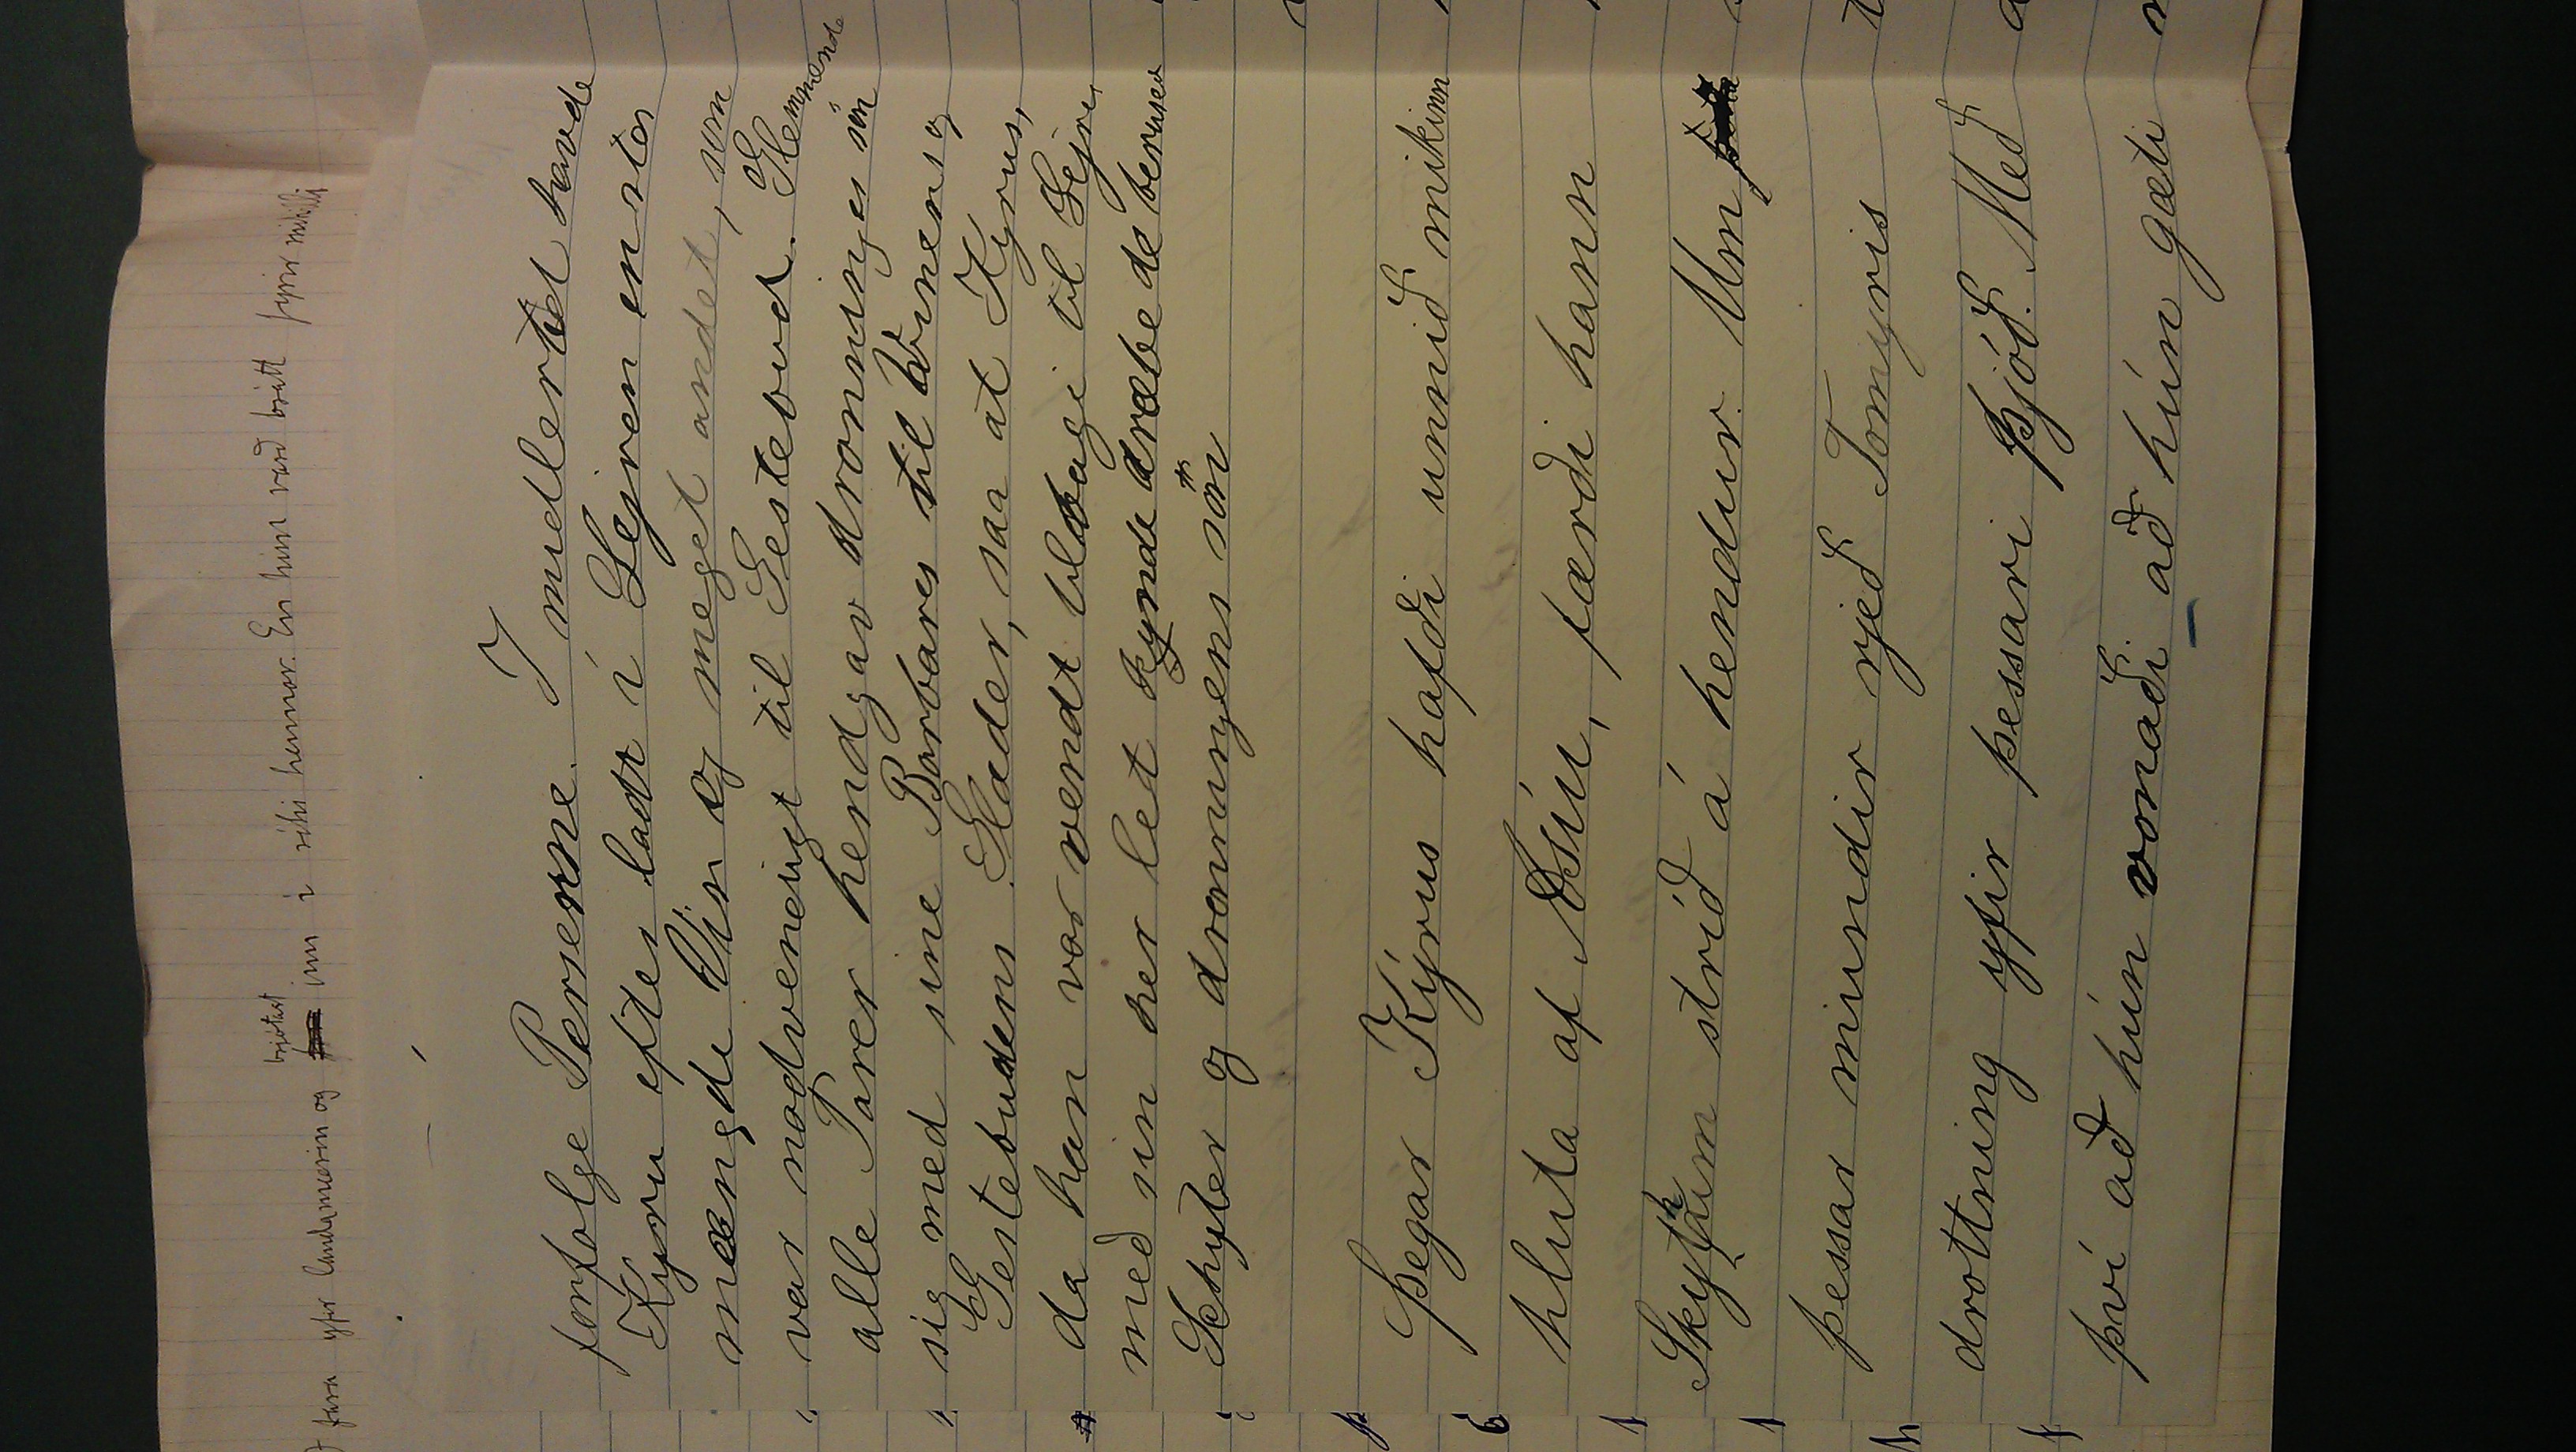 fara yfir landamærin og brjótast inn í ríki hennar. En hún varð brátt fyrir mikilli
forfølge Perserne. I midlertid havde
Kyru efter ladt i Lejren en stor
mængde Vin og meget andet, som
var nødvenigt til Gestebud. Glemmende
alle Farer hendgav dronninges sön
sig med sine Barbares til Vinens og
Gestebudens Glæder, saa at Kyrus,
da han var vendt tilbage til Lejre,
med sin her let kynde dræbe de beruset
Schyter og dronningens sön
Þegar Kýrus hafði unnið mikinn
hluta af Asíu, færði hann
Skythum stríð á hendur. Um
þessar mundir rjeð Tomyris
drottning yfir þessari þjóð. Með
því að hún vonaði að hún gæti